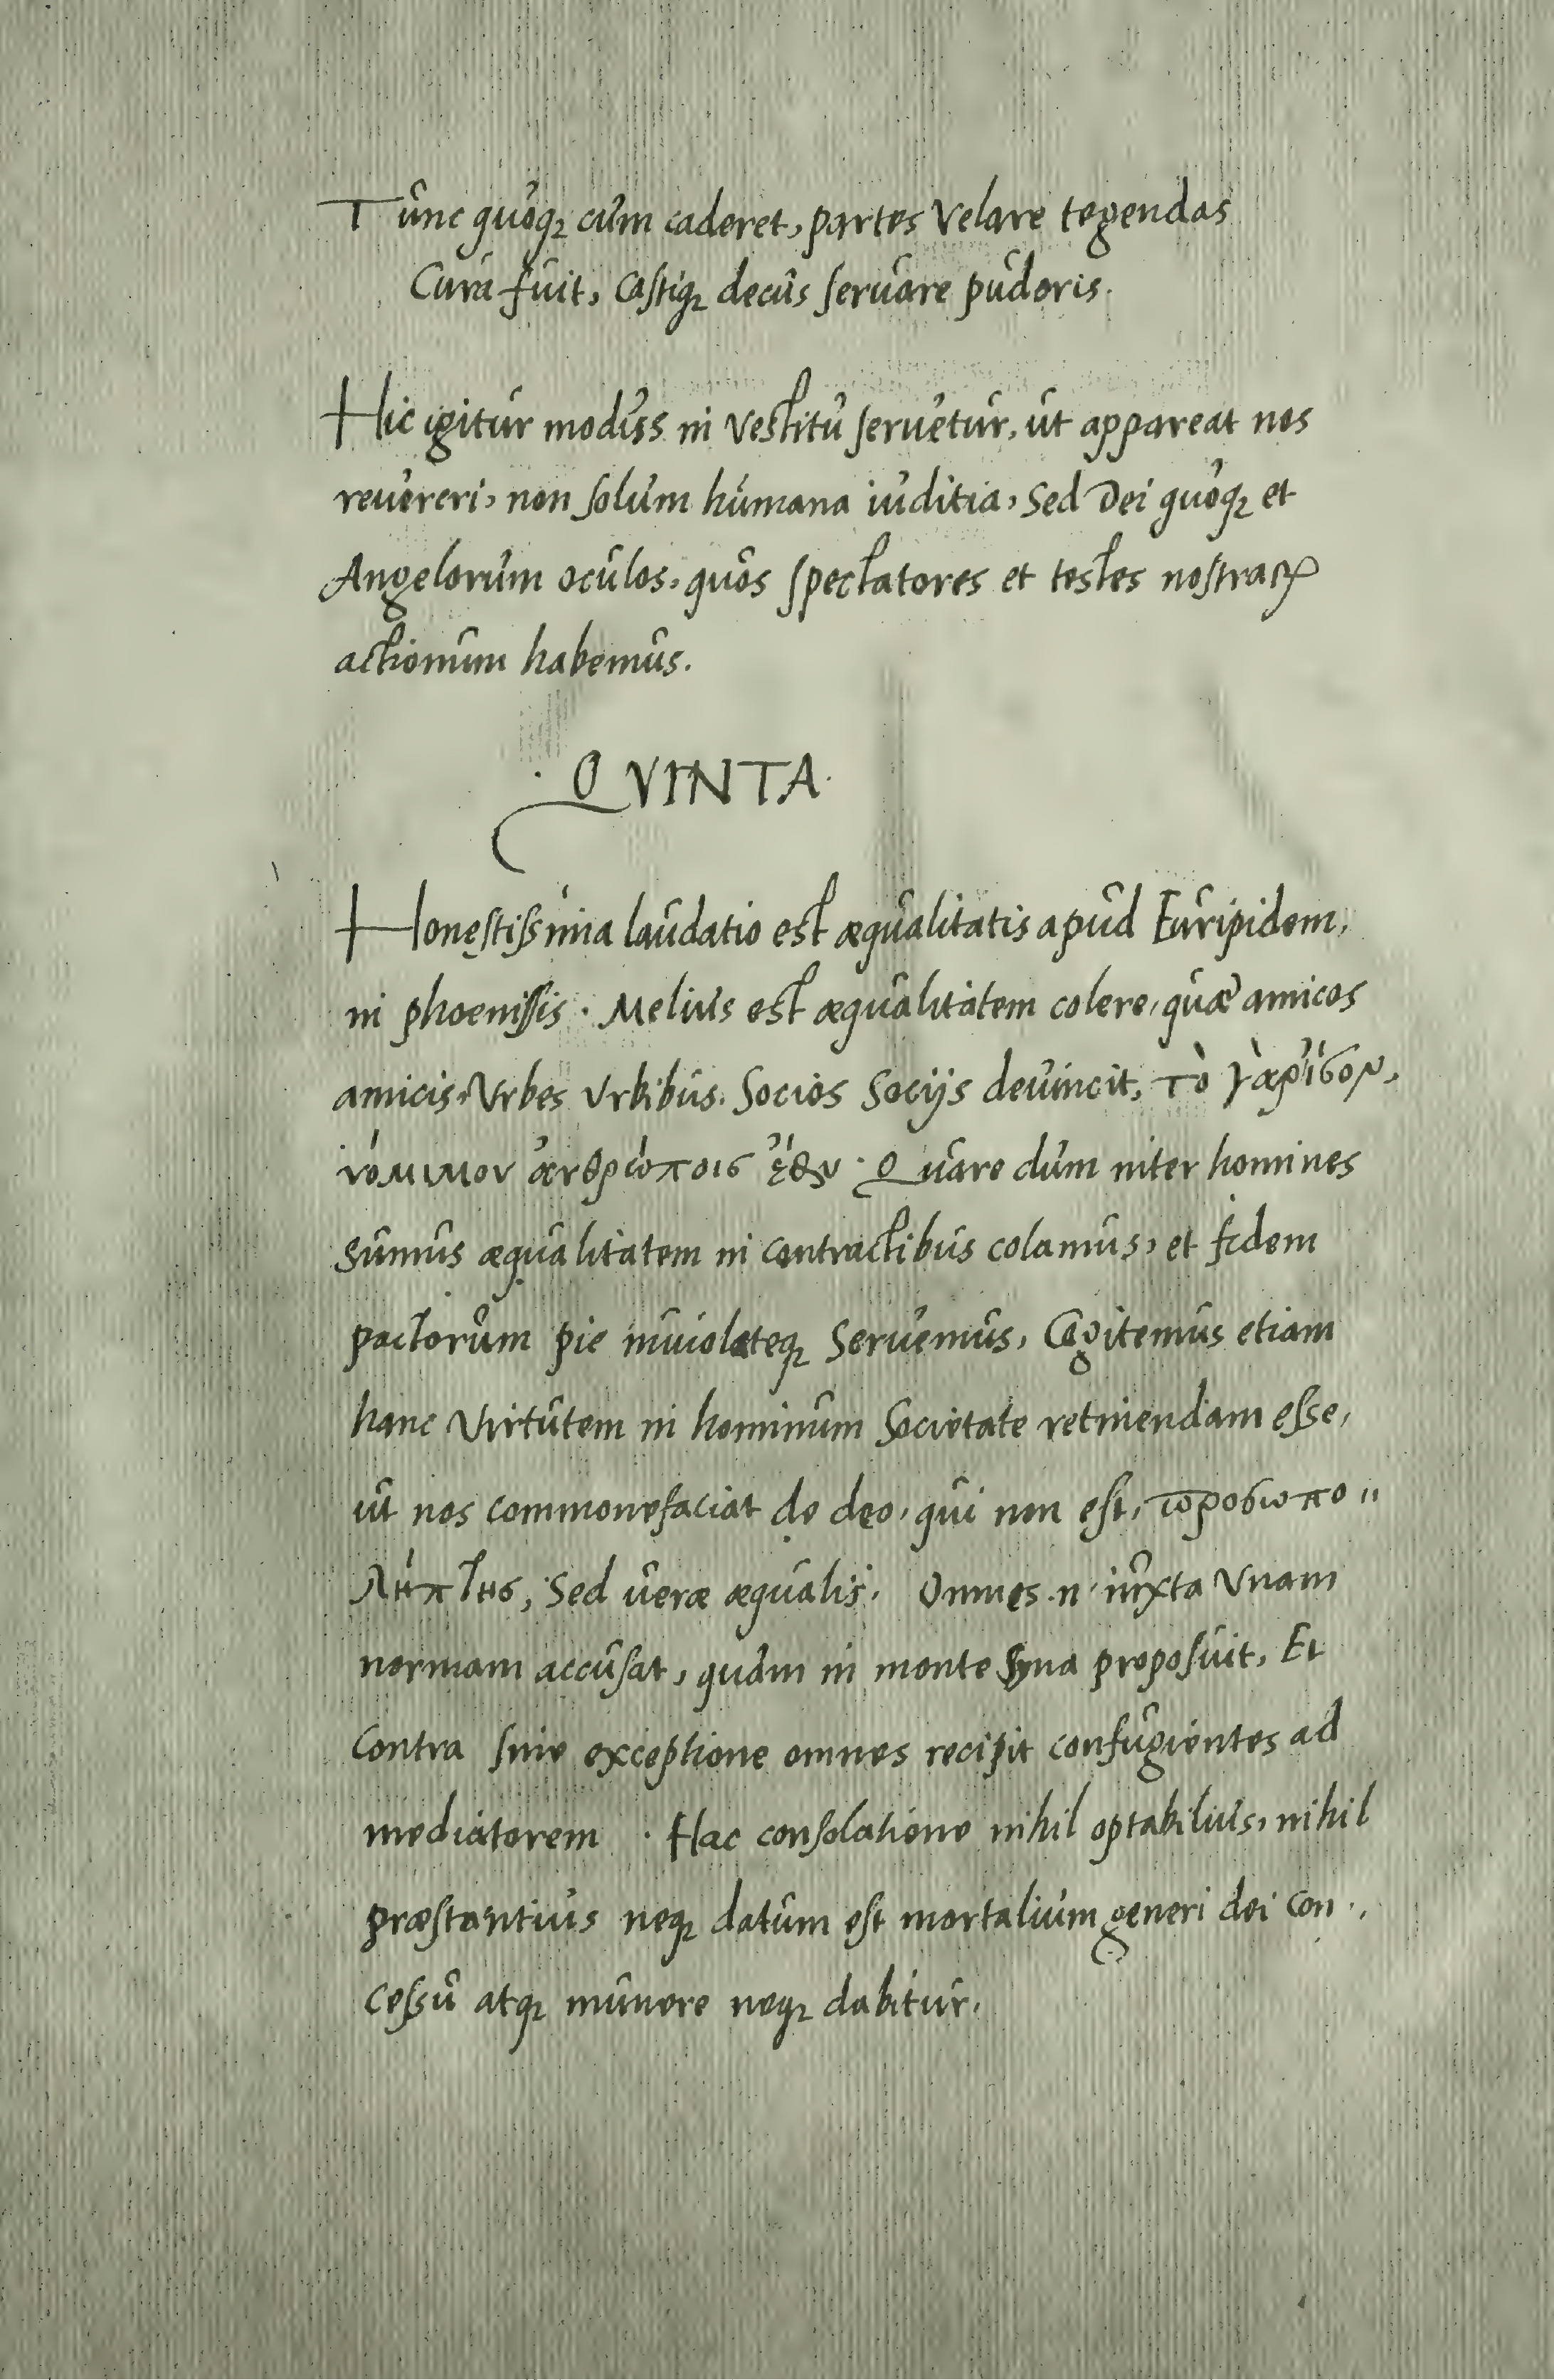 Tunc quoqꝫ cum caderet, partes Velare tegendas
Cura fuit, Castiqꝫ decus seruare pudoris.
Hic igitur modus in vestitu seruetur, ut appareat nos
reuereri, non solum humana iuditia, Sed Dei quoqꝫ et
Angelorum oculos, quos spectatores et testes nostraꝝ
actionum habemus.
· QVINTA ·
Honestissima laudatio est æqualitatis apud Euripidem,
in phoenissis · Melius est æqualitatem colere, quæ amicos
amicis, Vrbes Vrbibus, Socios Socijs deuincit, τὸ γὰρ ἴσον,
νόμιμον ἀνθρώποις ἔφυ · Quare dum inter homines
Sumus æqualitatem in contractibus colamus, et fidem
pactorum pie inuiolateqꝫ Seruemus, Cogitemus etiam
hanc Virtutem in hominum Societate retinendam esse,
ut nos commonefaciat de deo, qui non est, προσωπο〃
λήπτης, Sed uere æqualis. Omnes .n. iuxta Vnam
normam accusat, quam in monte Syna proposuit, Et
Contra sine exceptione omnes recipit confugientes ad
mediatorem · Hac consolatione nihil optabilius, nihil
præstantius neqꝫ datum est mortalium generi dei con ·,
cessu atqꝫ munere neqꝫ dabitur.